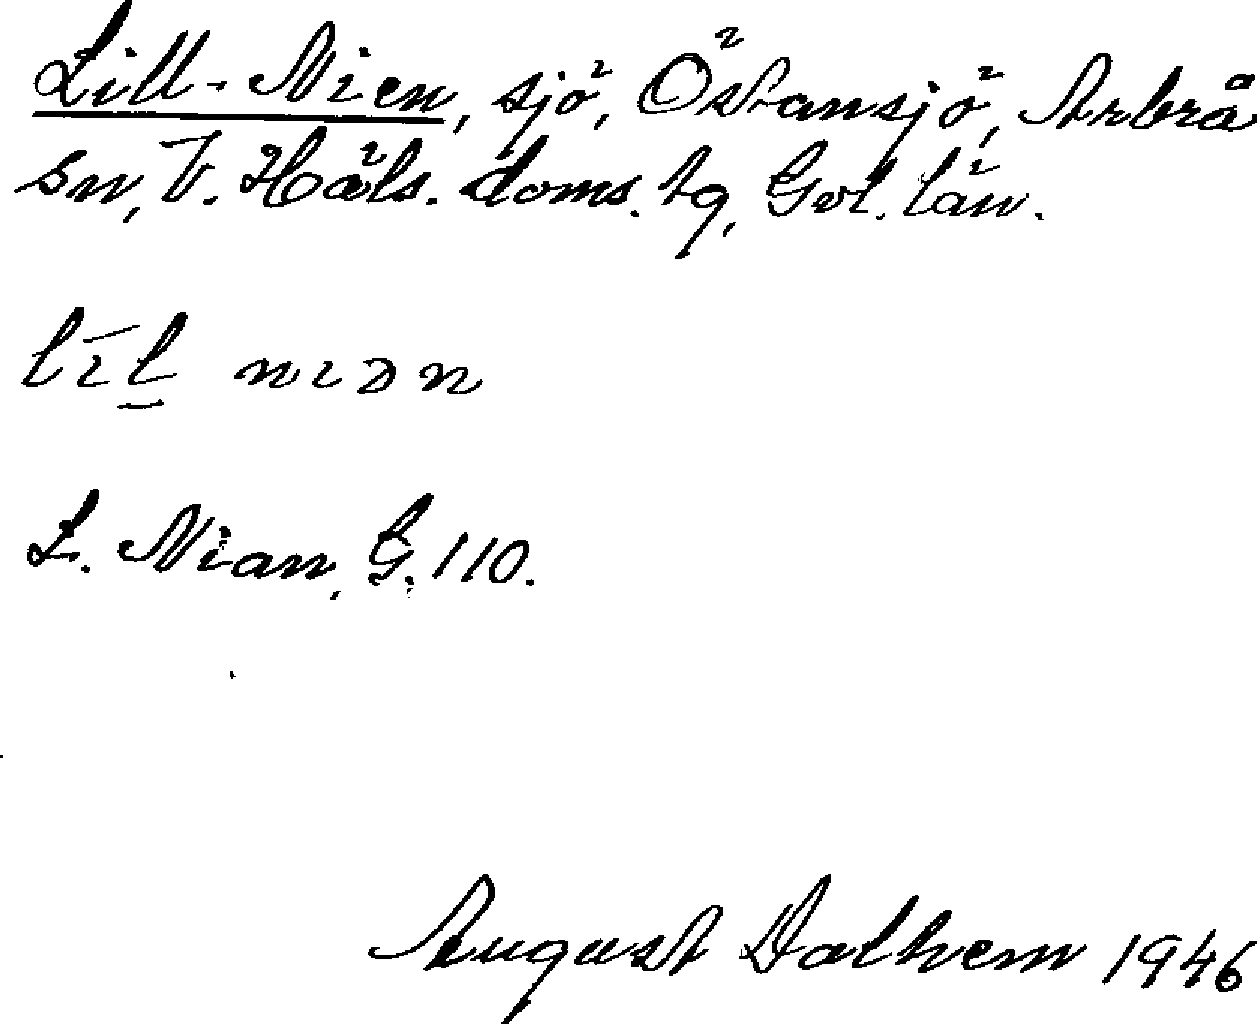 Lill-Nien, sjö, Östansjö, Arbrå
sn, V. Häls. doms. tg, Gvl. län.
līl̲ nıən
L. Nian, G. 110.
August Dalhem 1946